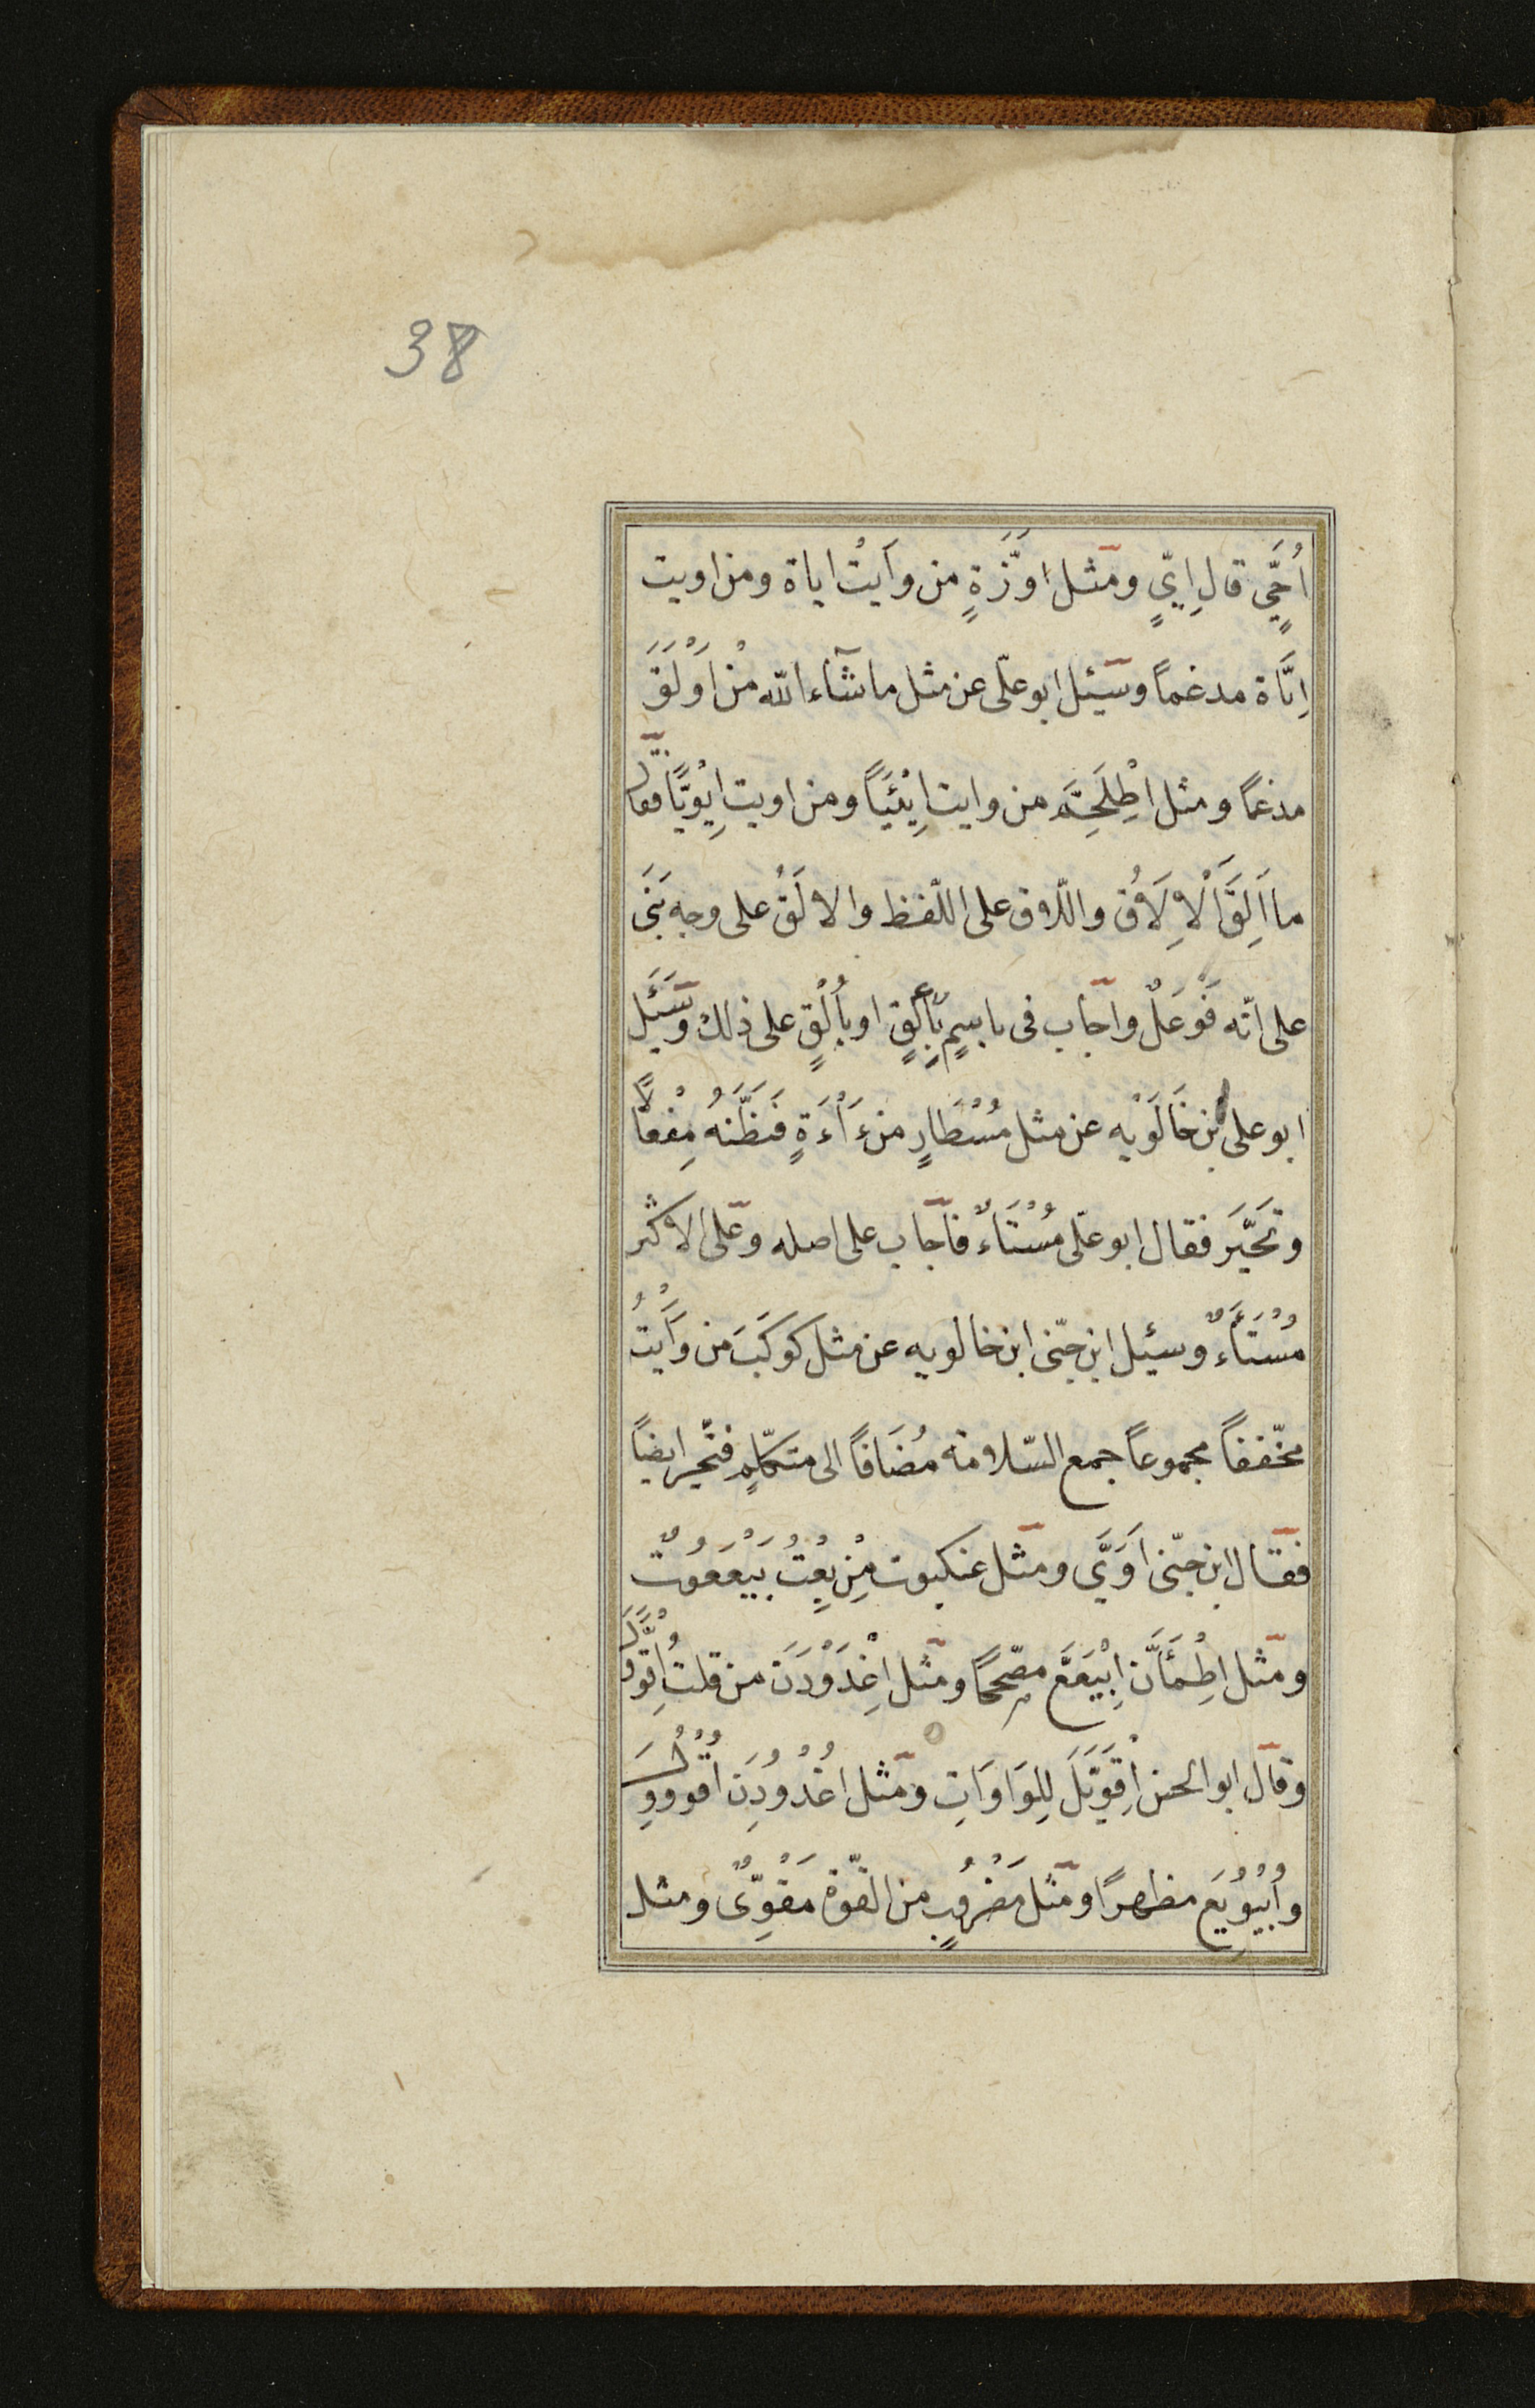 38
اُحَيٍّ قال اِيٍّ ومثل اِوَزَّةٍ من وأَيْتُ اياة ومن اويت
اِيَّاة مدغماً وسئيل ابو علّى عن مثل ما شآء الله مْن اَوْلَقَ
مدغماً ومثل اطْلَخَمَّ من وايت اِيْئَيَّاً ومن اويت اِيْوَيَّاً فقال
ما اَلِقَ اَلْاِلَاقُ واللّاق على اللّفظ والالَقُ على وجه بَنَى
على انّه فَوْعَلٌ واجاب فى باسمٍ بِأَلِقٍ او بأُلْقٍ على ذلك وسَئَيل
ابو على بن خَالَوَيْه عن مثل مُسْطَارٍ من ءَاْءَةٍ فَظَنَّهُ مِفْعالًا
وتَحَيَّرَ فقال ابو علّى مُسْتَاءٌ فاجاب على اصله وعلى الاكثر
مُسْتَأَءٌ وسئيل ابن جنّى ابن خالويه عن مثل كوكَبَ من وَأَيْتُ
مخّففاً مجموعاً جمع السّلامة مُضَافاً الى متكلّمٍ فتحّير ايضاً
فقال ابن جنّى اَوَيَّ ومثل عنكبوت مِنْ بِعْتُ بَيْعَعُوتٌ
ومثل اطْمَأَنَّ اِبْيَعَعَّ مصّححاً ومثل اغْدَوْدَنَ من قلت اِقْوَوَّلَ
وقال ابو الحسن اِقْوَيَّلَ لِلِوَاوَاتِ ومثل اغْدُوْدِنَ اُقْوُوْوِلَ
واُبْيُوْيِعَ مظهراً ومثل مَضْرُوبٍ من القّوة مَقْوِىٌّ ومثل